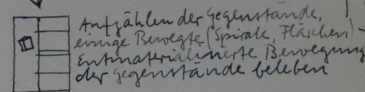 Aufzählen der Gegenstände,
einige Bewegte (Spirale, Fläschen) -
Entmaterialisierte Bewegung
der Gegenstände beleben